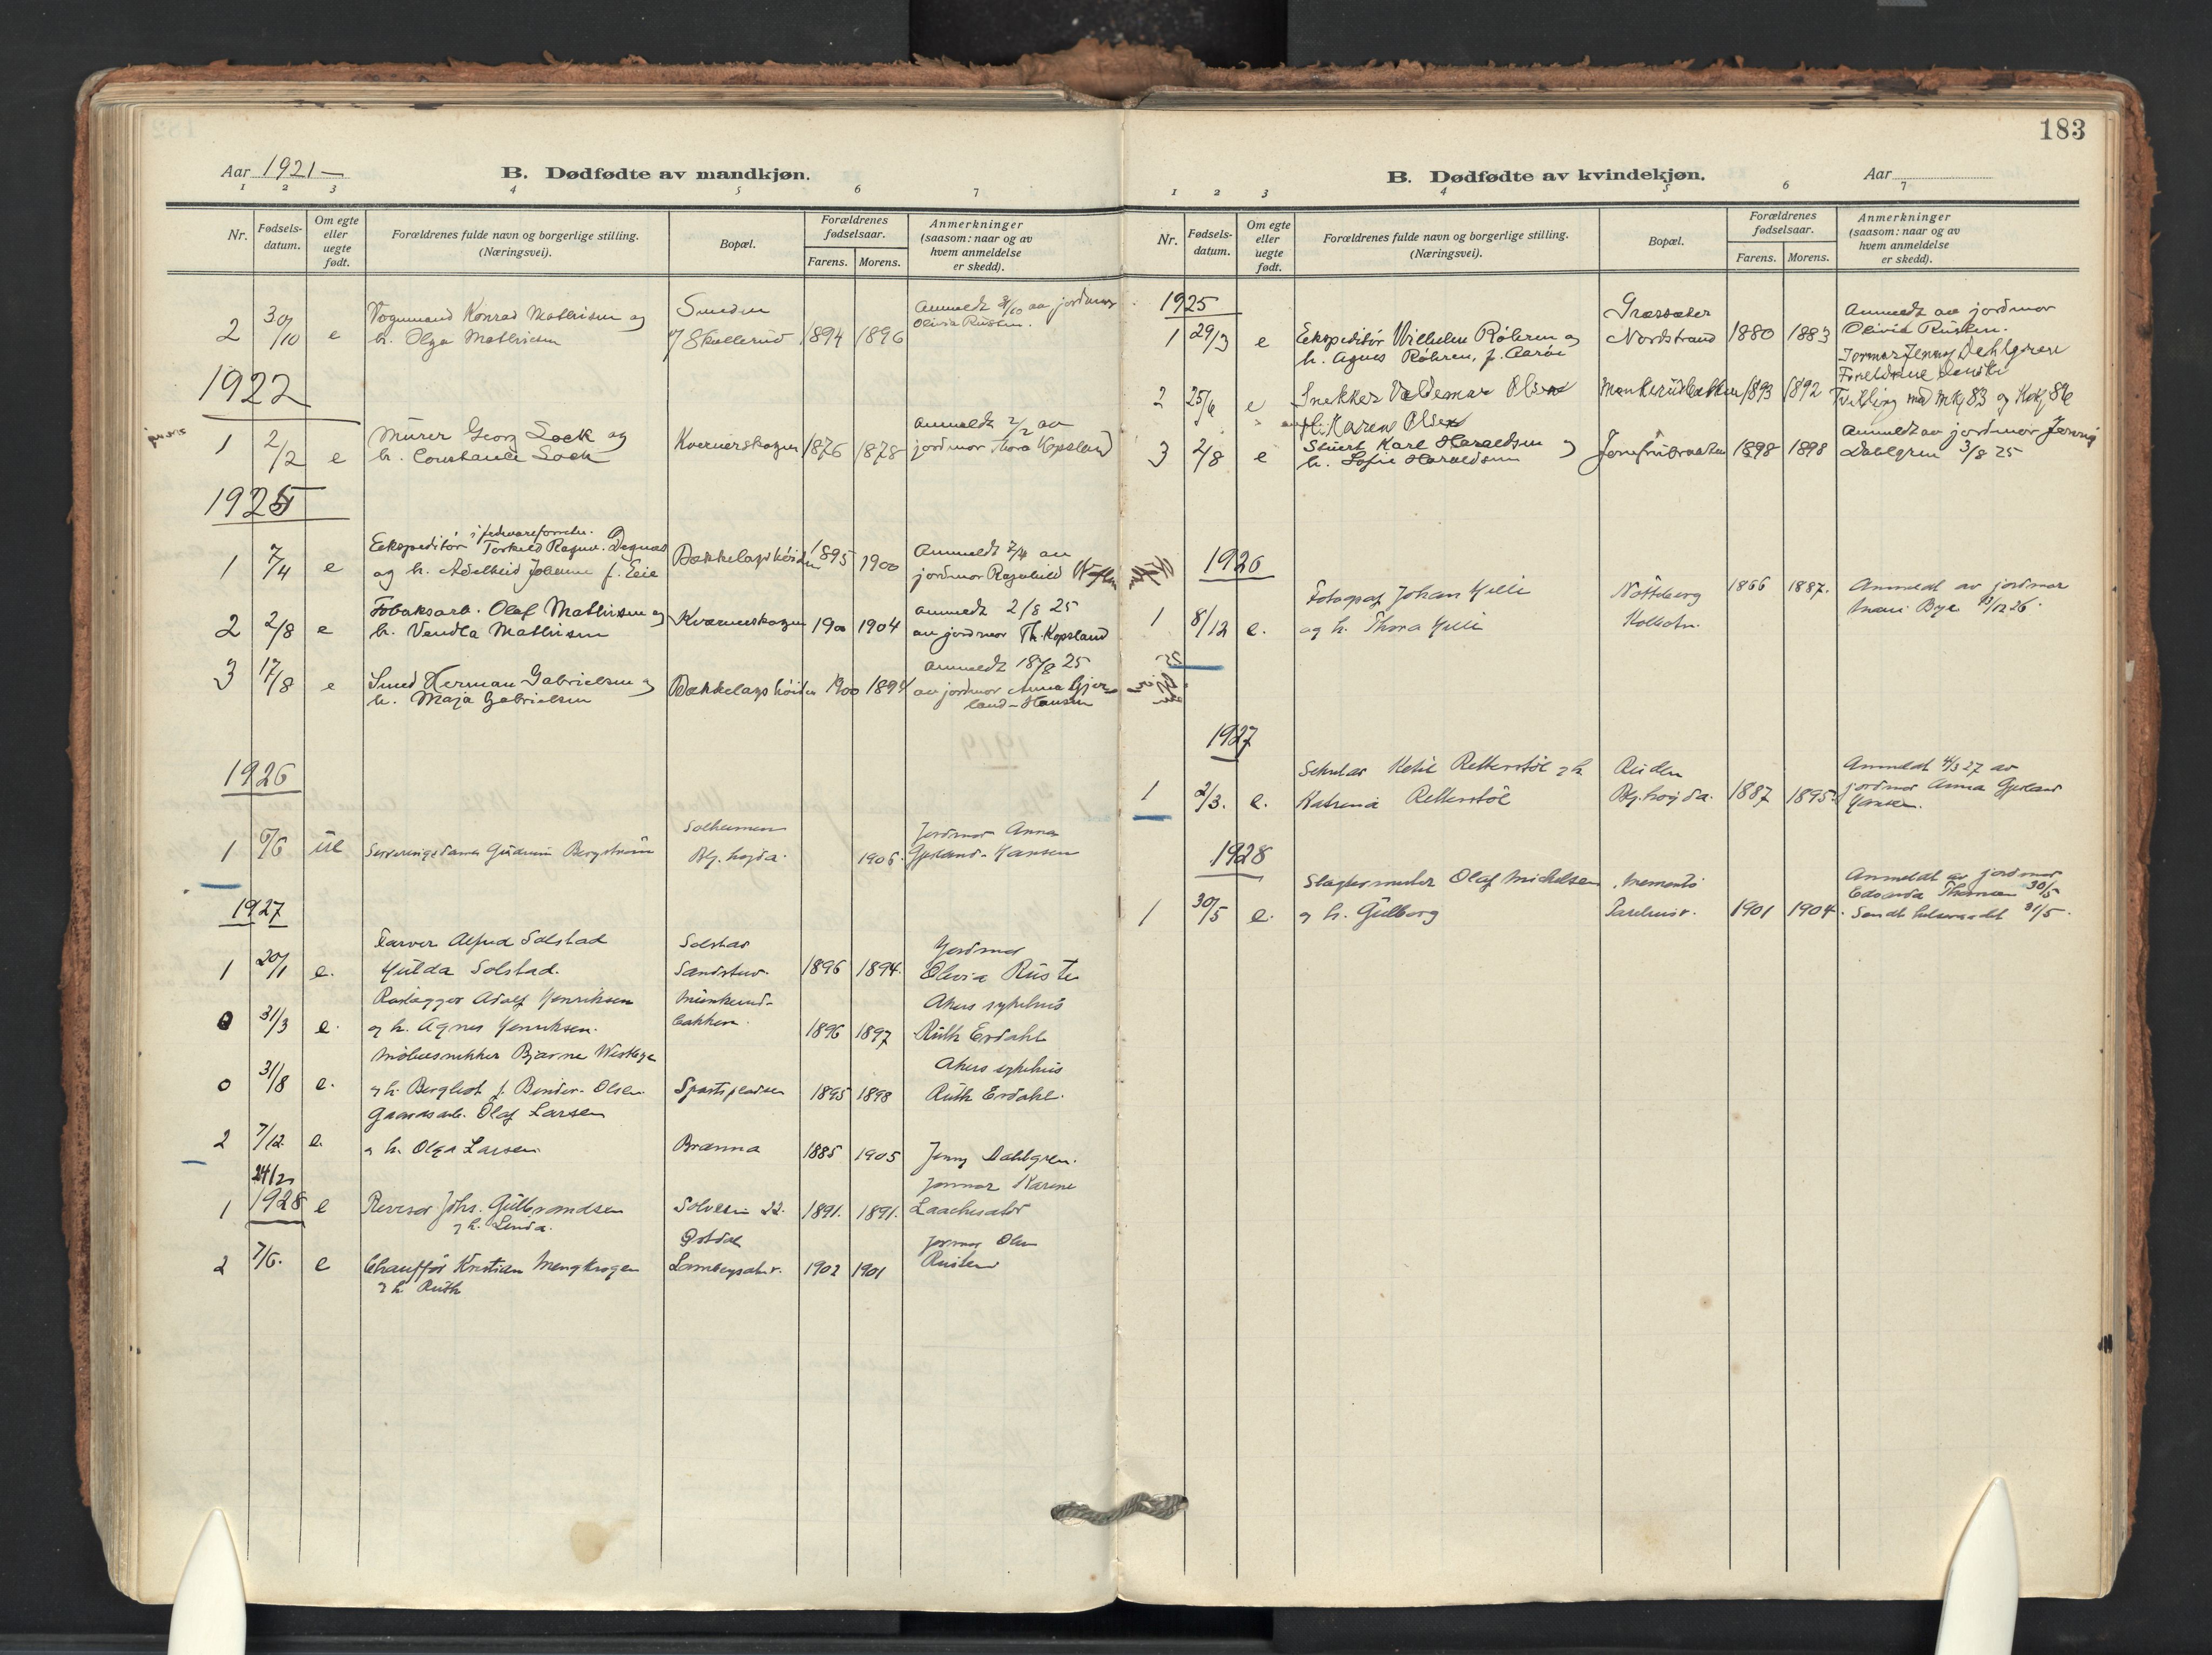 Aar 1921 —
B. Dødfødte av mandkjøn.
1 2 3 4 5 6 7
Nr.
Fødsels-
datum.
Om egte
eller
uegte
født.
Forældrenes fulde navn og borgerlige stilling.
(Næringsvei).
Bopæl.
Forældrenes
fødselsaar.
Farens. Morens.
Anmerkninger
(saasom: naar og av
hvem anmeldelse
er skedd).
2 30/10 e Vognmand Konrad Mathisen og
h. Olga Mathisen
Skullerud 1894 1896
av jordmor
Olivia Rusten.
1922
1 2/2 e Murer Georg Loek og
h. Constance Loek
Kvernerskogen 1876 1878
anmeldt 2/2 av
jordmor Thora Kopsland
1925
1 7/4 e Ekspeditør
og h. Adelheid Johanne f. Eie
Bækkelagshøiden 1895 1900
Anmeldt 7/4 av
jordmor Ragnhild
2 2/8 e Olaf Mathisen og
h. Vendla Mathisen
Kværnerskogen 1900 1904
anmeldt 2/8 25
av jordmor Th. Kopsland
3 17/8 e Smed Herman Gabrielsen og
h. Maja Gabrielsen
Bækkelagshøiden 1900 1894
anmeldt 18/8 25
av jordmor Anna Gjes-
land-Hansen
1926
1 ue Serveringsdame Gudrun Bergstrøm
Solheimen
Bkl. høgda. 1906.
Jordmor Anna
Gjesland-Hansen
1927
1 20/1 e. Farver Alfred Solstad
Hulda Solstad.
Solstad
Sandstuv. 1896 1894.
Jordmor
Olivia Rusten
0 31/3 e. Rørlægger Adolf Henriksen
og h. Agnes Henriksen.
Munkerud-
bakken. 1896 1897
Akers sykehus
Ruth Erdahl
0 31/8 e. Møbelsnekker Bjarne Westbye
og h. Bergliot f. Bender-Olsen.
Sportsplassen 1895 1898
Akers sykehus
Ruth Erdahl.
2 7/12. e. Gaardsarb. Olaf Larsen
og h. Olga Larsen.
Brænna 1885 1905
Jenny Dahlgren.
1928
1 24/2 e Revisor Johs. Gulbrandsen
og h. Linda.
Solvein 22. 1891. 1891.
Jormor Karene
2 7/6. e Chauffør Kristian Mengkrogen
og h. Ruth
Østdal
1902 1901
Jormor
Rusten
183
B. Dødfødte av kvindekjøn.
Aar
1 2 3 4 5 6 7
Nr.
Fødsels-
datum.
Om egte
eller
uegte
født.
Forældrenes fulde navn og borgerlige stilling.
(Næringsvei).
Bopæl.
Forældrenes
fødselsaar.
Farens. Morens.
Anmerkninger
(saasom: naar og av
hvem anmeldelse
er skedd).
1925
1 29/3 e Ekspeditør Wilhelm Røhren og
h. Agnes Røhren, f. Aarøe
Græssæter
Nordstrand 1880 1883
Anmeldt av jordmor
Olivia Rusten.
2 25/6 e Snekker Valdemar Olsen
og H. Karen Olsen
Munkerudbakken 1893 1892
Jormor Jenny Dahlgren
Foreldrene
Tvilling med
3 2/8 e Stuert Karl Haraldsen og
h. Sofie Haraldsen
Jomfrubraaten 1898 1898
Anmeldt av jordmor Jenny
Dahlgren 3/8 25
1926
1 8/12 e. Fotograf Johan Hilli
og h. Thora Hilli
Nøtteberg
Kolbotn. 1866 1887.
Anmeldt av jordmor
Mari Bye
1927
1 2/3. e. Sekretær Ketil Retterstøl og h.
Katrina Retterstøl
Bkl. høgda. 1887 1895.
Anmeldt 4/3 27 av
jordmor Anna Gjesland
Hansen.
1928
1 30/5 e. Slagtermester Olaf Mickelsen
og h. Gulborg
1901 1904.
Anmeldt av jordmor
Edvarda Thomsen 30/5
Sendt helseraadet 31/5.